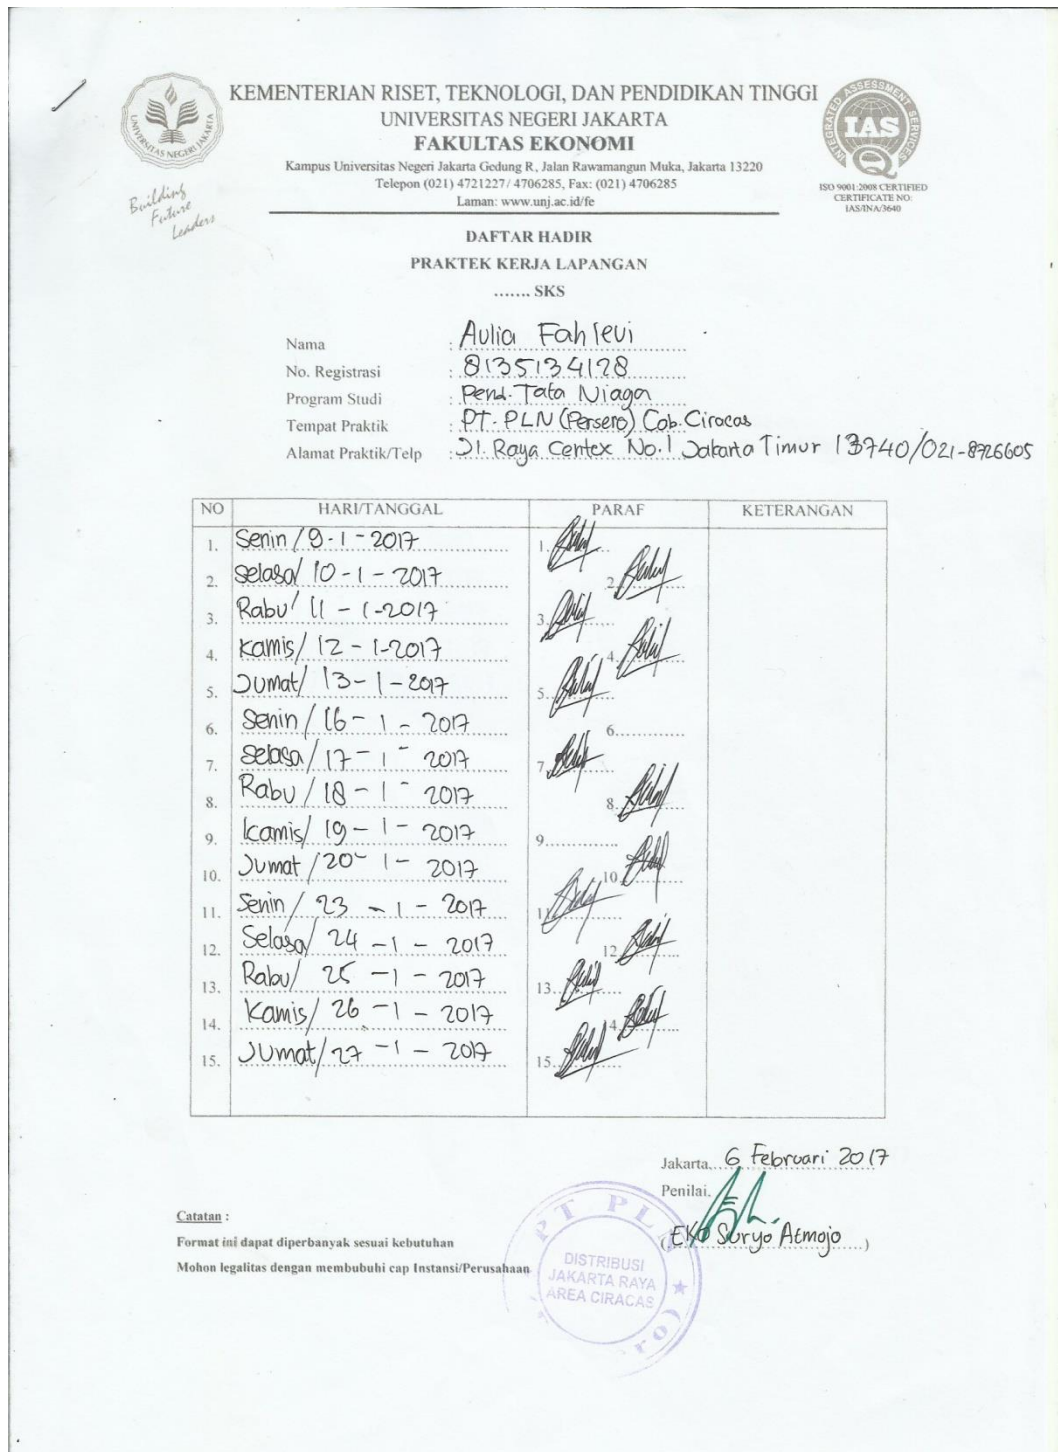 KEMENTERIAN RISET, TEKNOLOGI, DAN PENDIDIKAN TINGGI
UNIVERSITAS NEGERI JAKARTA
FAKULTAS EKONOMI
Kampus Universitas Negeri Jakarta Gedung R, Jalan Rawamangun Muka, Jakarta 13220
Telepon (021) 4721227/ 4706285, Fax: (021) 4706285
Laman: www.unj.ac.id/fe
UNIVERSITAS NEGERI JAKARTA
Building
Future
Leaders
INTEGRATED ASSESSMENT SERVICES
IAS
ISO 9001:2008 CERTIFIED
CERTIFICATE NO:
IAS/INA/3640
DAFTAR HADIR
PRAKTEK KERJA LAPANGAN
....... SKS
Nama : Aulia Fahlevi
No. Registrasi : 8135134128
Program Studi : Pend. Tata Niaga
Tempat Praktik : PT. PLN (Persero) Cab. Ciracas
Alamat Praktik/Telp : Jl. Raya Centex No. 1 Jakarta Timur 13740/021-8726605
NO HARI/TANGGAL PARAF KETERANGAN
1. Senin / 9 - 1 - 2017 1.
2. Selasa/ 10 - 1 - 2017 2.
3. Rabu/ 11 - 1 - 2017 3.
4. Kamis/ 12 - 1 - 2017 4.
5. Jumat/ 13 - 1 - 2017 5.
6. Senin / 16 - 1 - 2017 6.
7. Selasa/ 17 - 1 - 2017 7.
8. Rabu / 18 - 1 - 2017 8.
9. Kamis/ 19 - 1 - 2017 9.
10. Jumat / 20 - 1 - 2017 10.
11. Senin / 23 - 1 - 2017 11.
12. Selasa/ 24 - 1 - 2017 12.
13. Rabu/ 25 - 1 - 2017 13.
14. Kamis/ 26 - 1 - 2017 4.
15. Jumat/ 27 - 1 - 2017 15.
Jakarta, 6 Februari 2017
Penilai,
(Eko Suryo Atmojo)
Catatan :
Format ini dapat diperbanyak sesuai kebutuhan
Mohon legalitas dengan membubuhi cap Instansi/Perusahaan
PT PLN
DISTRIBUSI
JAKARTA RAYA
AREA CIRACAS